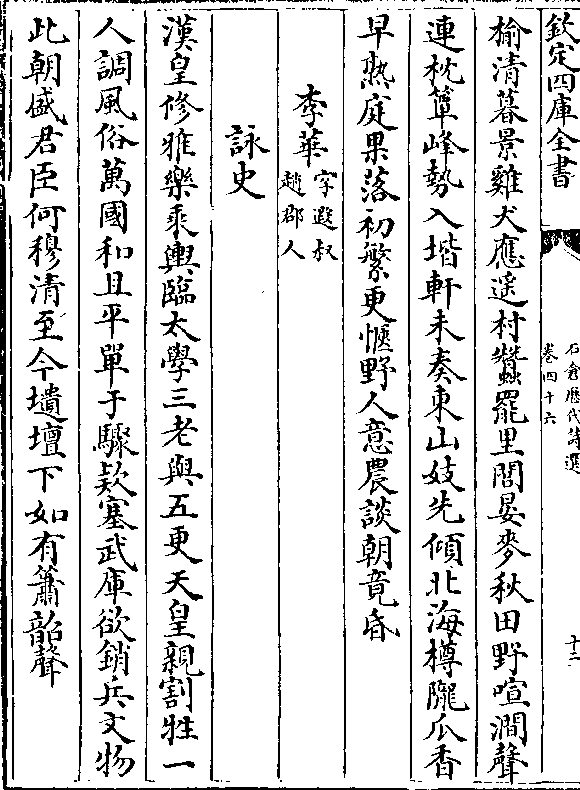 欽定四庫全書
石倉歷代詩選
卷四十六
十二
榆清暮景雞犬應遥村蠶罷里閭晏麥秋田野喧澗聲
連枕簟峰勢入堦軒未奏東山妓先傾北海樽隴瓜香
早熟庭果落初繁更愜野人意農談朝竟昏
李華字遐叔趙郡人
詠史
漢皇修雅樂乘輿臨太學三老與五更天皇親割牲一
人調風俗萬國和且平單于驟欵塞武庫欲銷兵文物
此朝盛君臣何穆清至今壝壇下如有簫韶聲